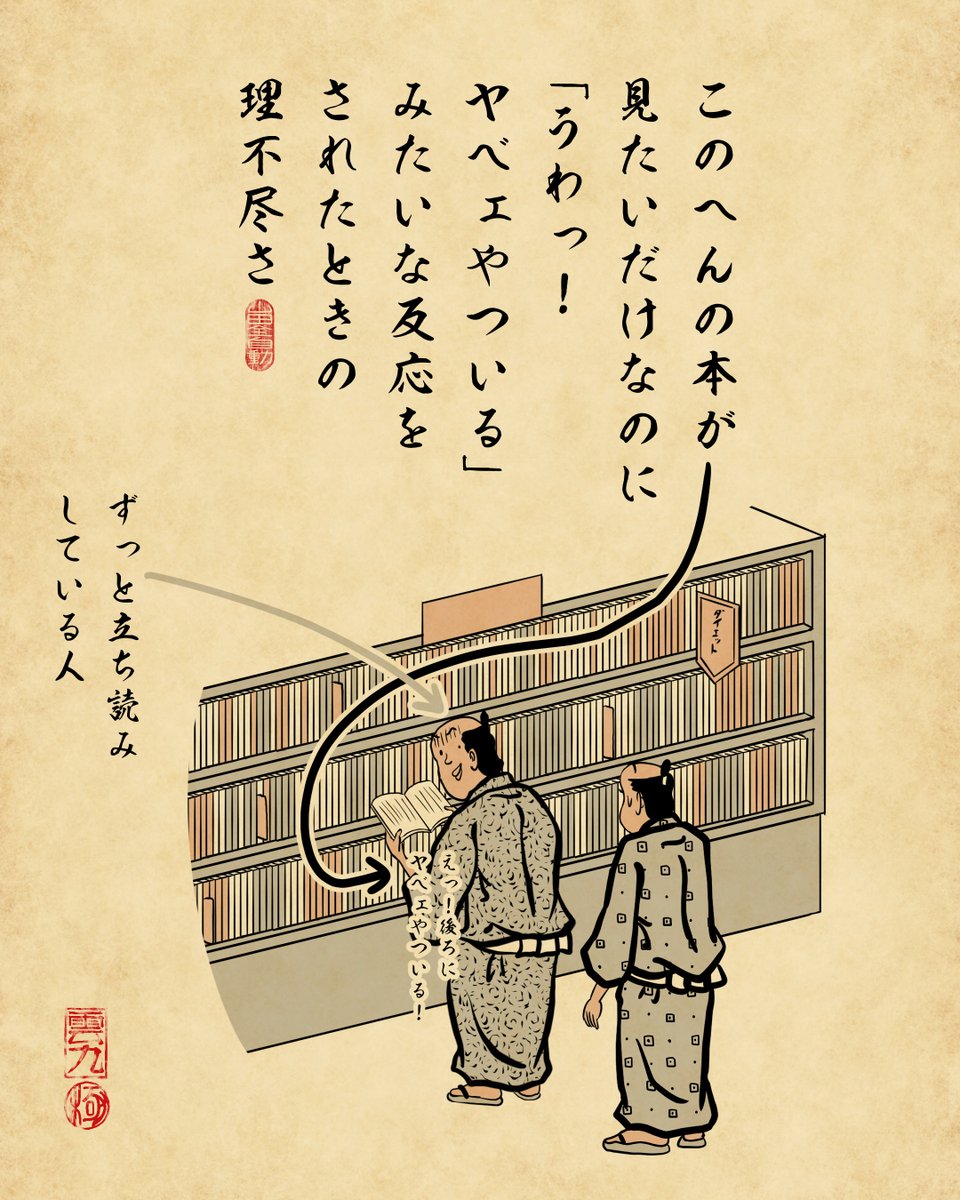 このへんの本が
見たいだけなのに
「うわっ!
ヤベェやついる」
みたいな反応を
されたときの
理不尽さ
ずっと立ち読み
している人
ダイエット
えっ!後ろに
ヤベェやついる!